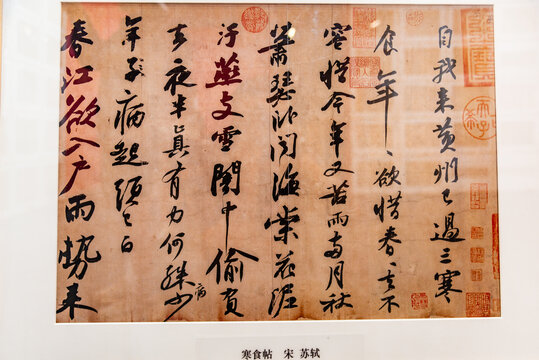 自我来黄州已過三寒
食年〻欲惜春〻去不
容惜今年又苦雨兩月秋
蕭瑟卧聞海棠花泥
汙燕支雪闇中偷負
去夜半真有力何殊少病
年子病起頭已白
春江欲入户雨勢来
寒食帖 宋 苏轼